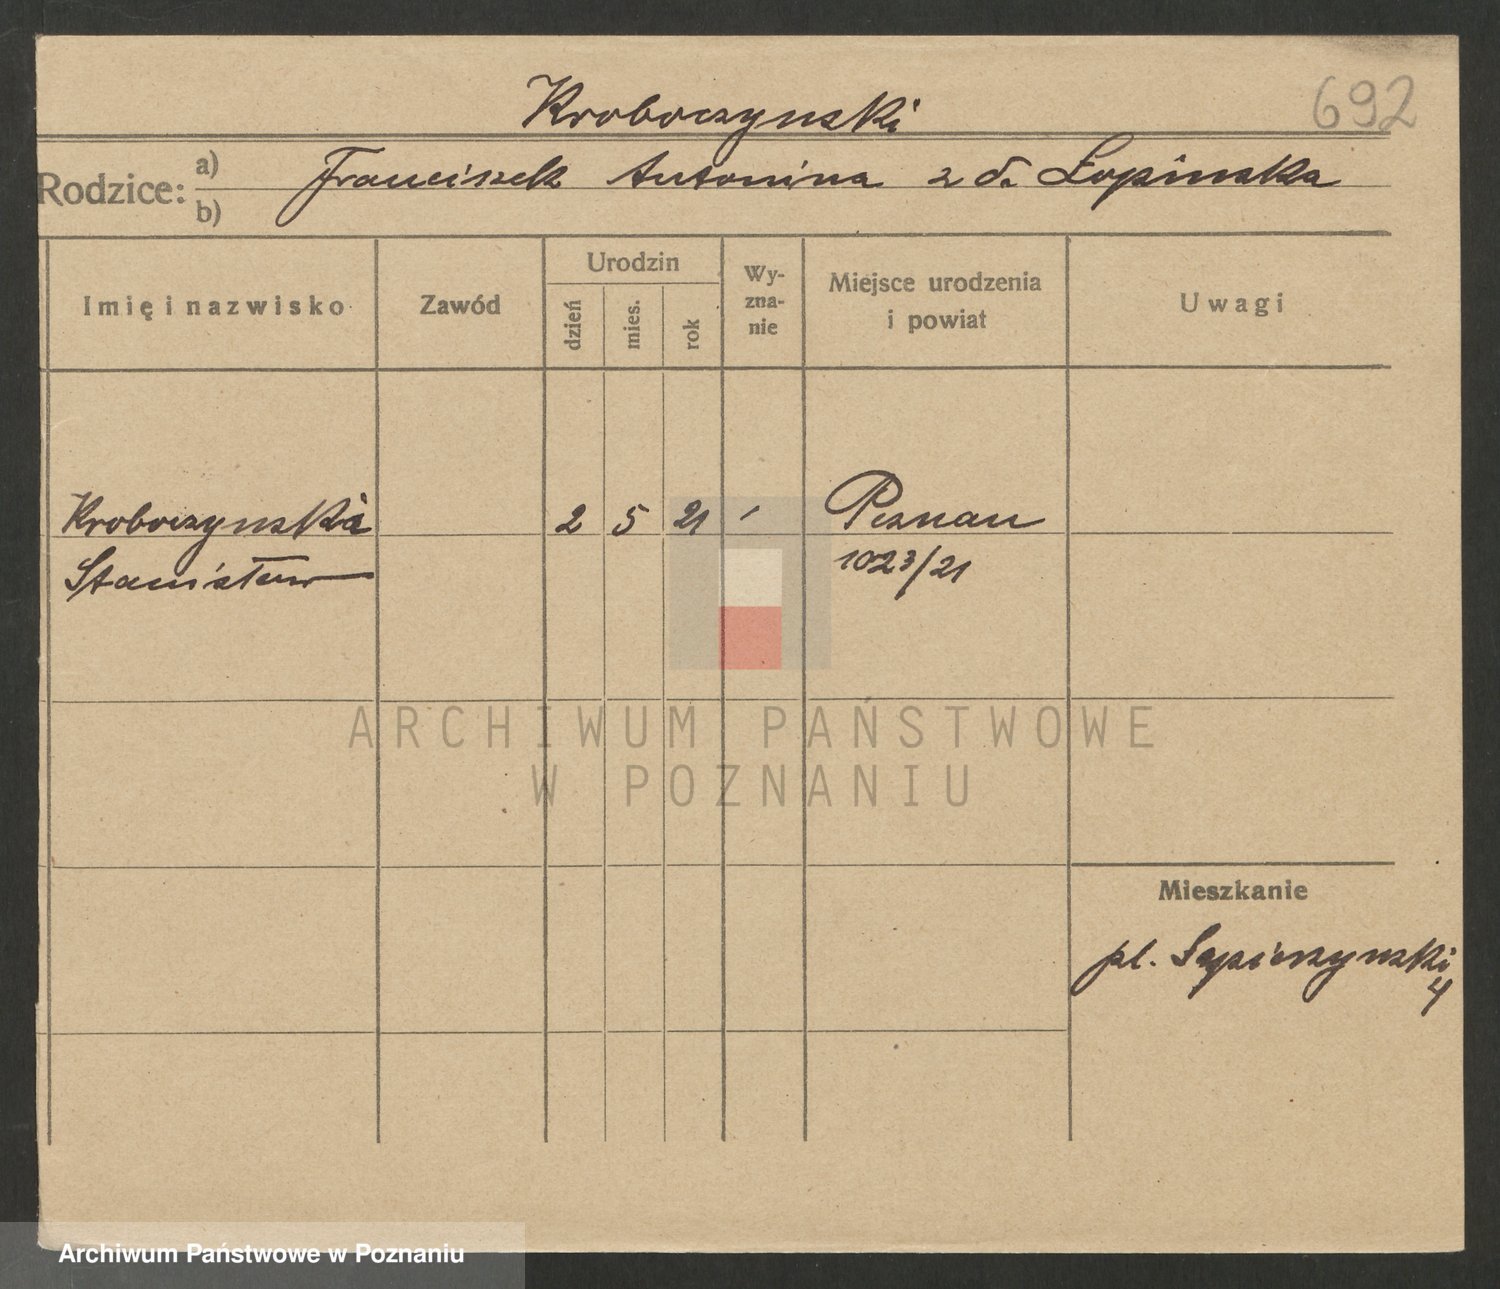 692
Kroboczynski
Rodzice: a) b) Franciszek Antonina z d. Łopinska
Imię i nazwisko Zawód Urodzin dzień mies. rok Wy-zna-nie Miejsce urodzenia i powiat Uwagi
Kroboczynski 2 5 21 Poznan
Stanisław 1023/21
ARCHIWUM PAŃSTWOWE
W POZNANIU
Mieszkanie
pl. Sapieżynski
4
Archiwum Państwowe w Poznaniu